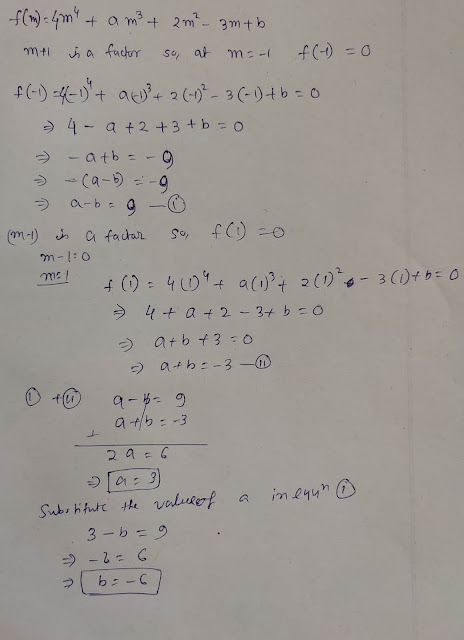 f(m) = 4m⁴ + a m³ + 2m² - 3m + b
m+1 is a factor so, at m = -1 f(-1) = 0
f(-1) = 4(-1)⁴ + a(-1)³ + 2(-1)² - 3(-1) + b = 0
⇒ 4 - a + 2 + 3 + b = 0
⇒ -a + b = -9
⇒ -(a-b) = -9
⇒ a-b = 9 —①
(m-1) is a factor so, f(1) = 0
m-1=0
m=1
f(1) = 4(1)⁴ + a(1)³ + 2(1)² - 3(1) + b = 0
⇒ 4 + a + 2 - 3 + b = 0
⇒ a+b+3 = 0
⇒ a+b = -3 —②
① + ② a - b = 9
a + b = -3
+
2a = 6
⇒ a = 3
Substitute the value of a in equⁿ ①
3 - b = 9
⇒ -b = 6
⇒ b = -6